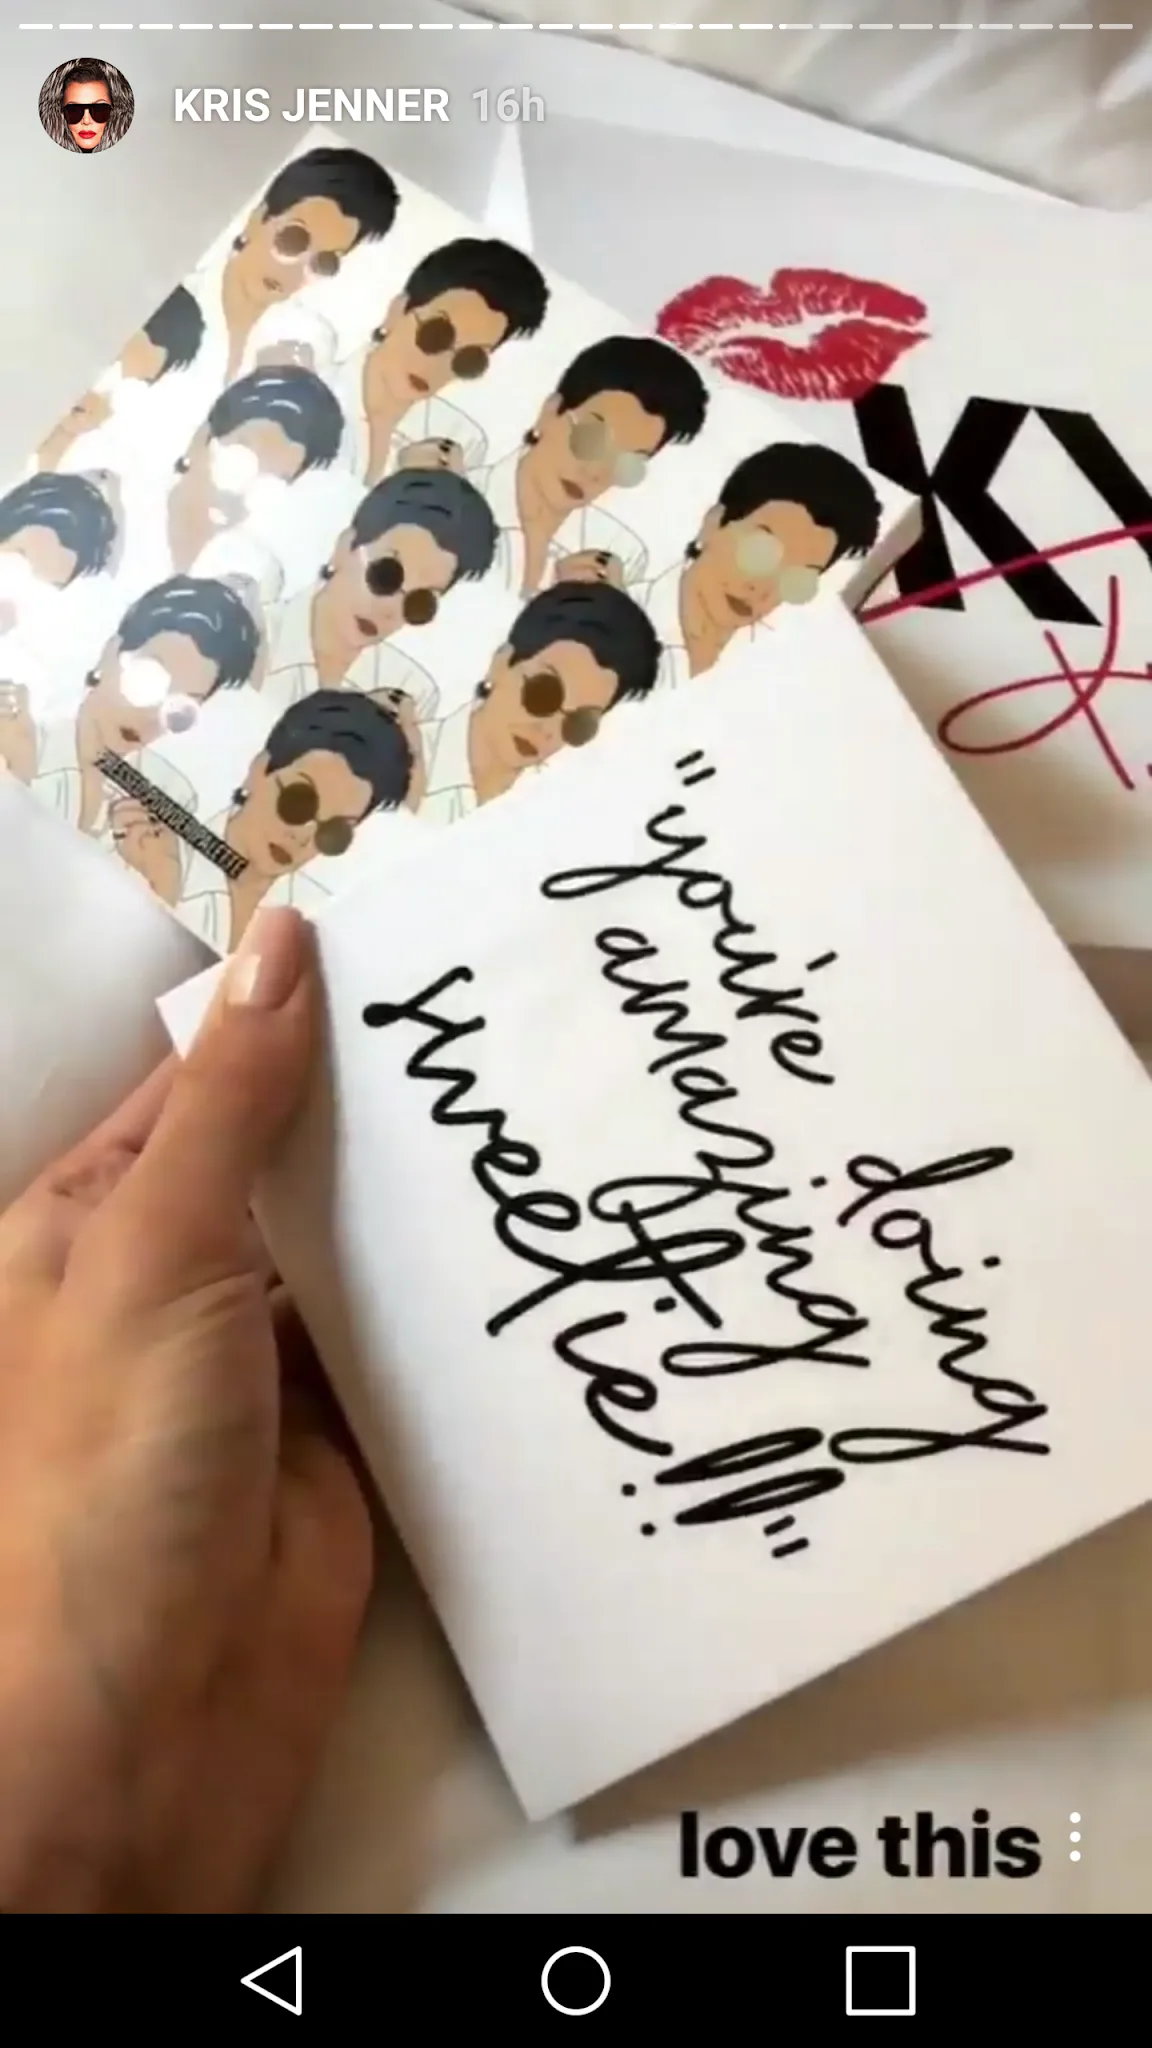 KRIS JENNER 16h
KY
PRESSED POWDER PALETTE
"you're
doing
amazing
sweetie!!"
love this